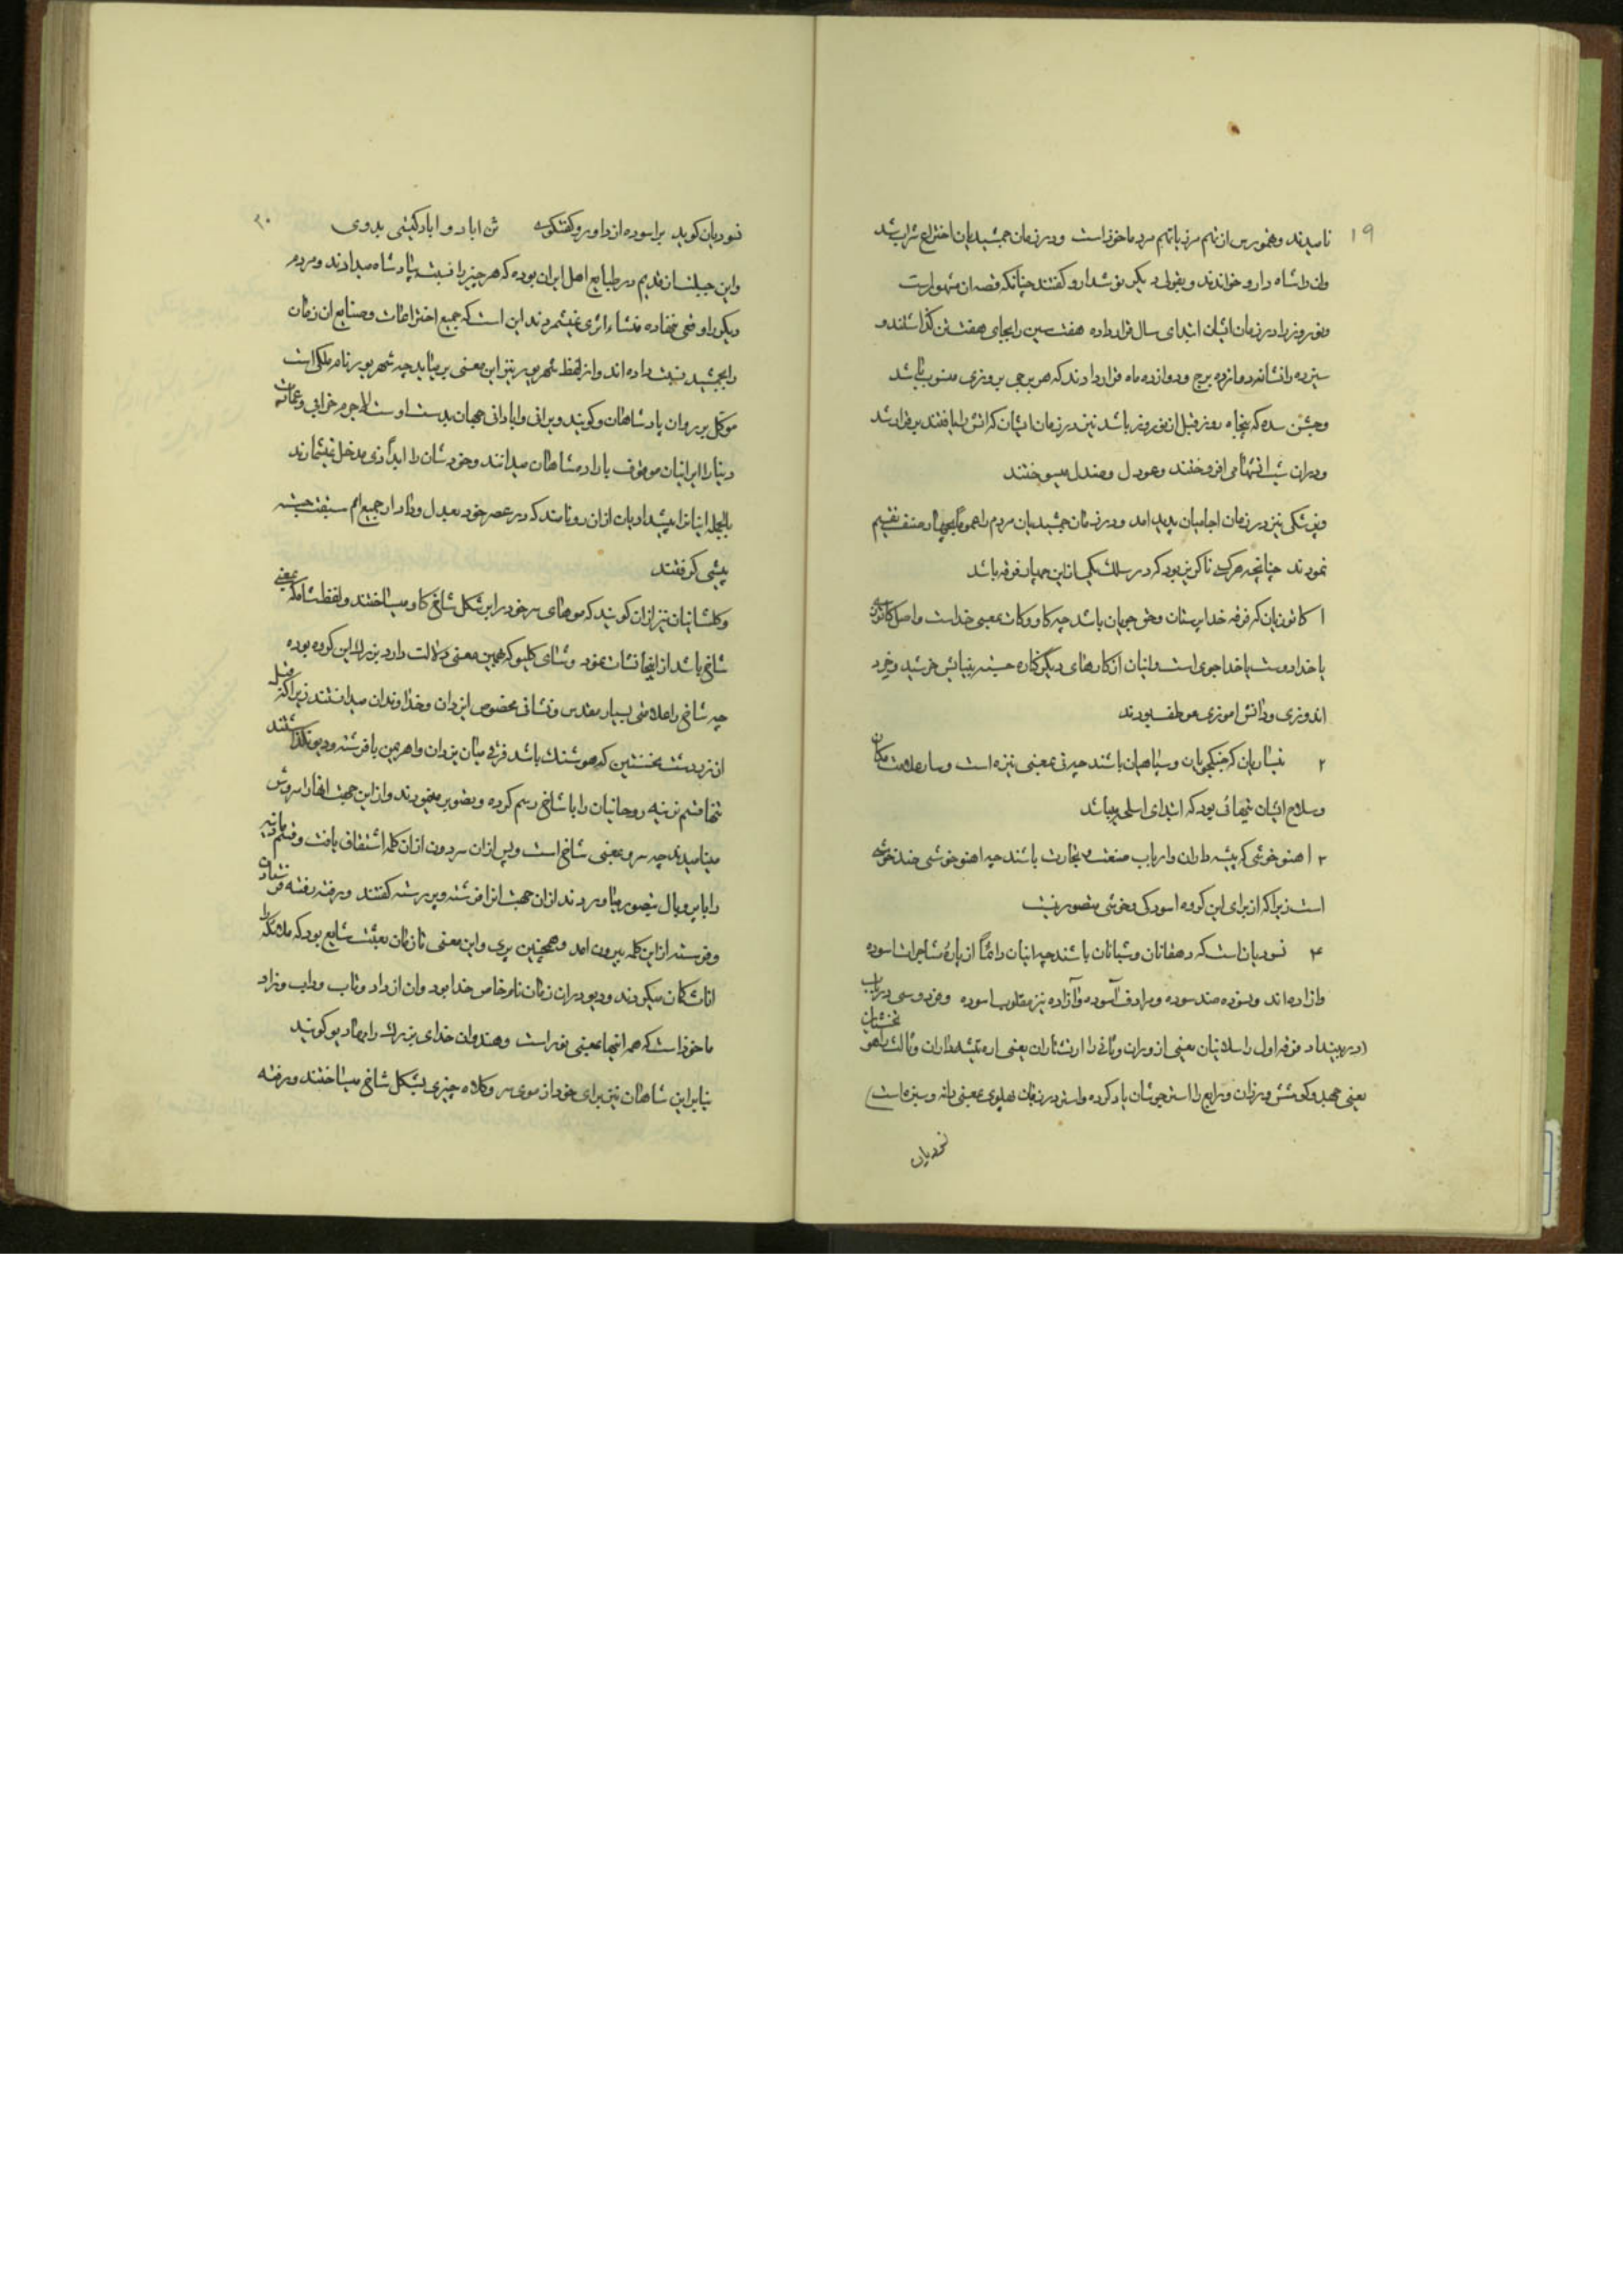 ۱۹
نامیدند وهنورس از تهم مرز یا تهم مرد ماخوذ است ودر زمان جمشیدیان اختراع شراب شد
وان را شاه دارو خواندند وبقولی دیگر نوشدارو کفتند چنانکه قصه ان مشهور است
ونوروز را در زمان ایشان ابتدای سال قرار داده هفت سین را بجای هفت شین کذاشتند و
سیزده را نشانه دوازده برج ودوازده ماه قرار دادند که هر برجی بروزی منسوب باشد
وجشن سده که پنجاه روز قبل از نوروز باشد نیز در زمان ایشان که اتش را یافتند برقرار شد
ودران شب اتشها می افروختند وعود ل وصندل میسوختند
وپزشکی نیز در زمان اجامیان پدید امد ودر زمان جمشیدیان مردم را عموماً بچهار صنف تقسیم
نمودند چنانچه هرکس ناکزیر بود که در سلک یکی از این چهار فرقه باشد
۱ کاتوزیان که فرقه خدا پرستان وحق جویان باشد چه کا وکات بمعنی خداست واصل کاتوزی
یا خدا دوست یا خدا جوی است وایشان از کارهای دیگر کناره جسته بنیایش خرشید وخرد
اندوزی ودانش اموزی موظف بودند
۲ نیساریان که جنکجویان وسپاهیان باشند چه نی بمعنی نیزه است وسار علامت مکان
وسلاح ایشان نیهائی بود که ابتدای اسلحه میباشد
۳ اهنوخوشی که پیشه داران وارباب صنعت وتجارت باشند چه اهنوخوشی ضد نوخوشی
است زیرا که از برای این کروه اسودکی وخوشی متصور نیست
۴ نسودیان است که دهقانان وشبانان باشند چه ایشان دائماً از پارهٔ مشاجرات اسوده
وازاده اند ونسوده ضد سوده ومرادف آسوده وآزاده نیز مقلوب اسوده وفردوسی در باب
نخستیان
(در پیشداد فرقه اول را سلانیان یعنی ازوران وثانی را ارتشتاران یعنی اره تیشه داران وثالث را هو
یعنی جهد وکوشش ورزان ورابع را استرجوشان یاد کرده واستو در زبان پهلوی بمعنی دانه وسبزه است)
نسودیان
۲۰
نسودیان کوید براسوده از داور وکفتکوی تن اباد و اباد کیتی بدوی
واین جبلت از قدیم در طبایع اهل ایران بوده که هر چیز را نسبت بپادشاه میدادند ومردم
دیکر را وقعی ننهاده منشاء اثری نمیشمردند این است که جمیع اختراعات وصنایع ان زمان
را بجمشید نسبت داده اند واز لفظ شهریور نیز این معنی بر میاید چه شهریور نام ملکی است
موکل بر روان پادشاهان وکویند ویرانی وابادانی جهان بدست اوست لاجرم خرابی وعمارت
دنیا را ایرانیان موقوف باراده شاهان میدانند وخودشان را ابداً ذی مدخل نمیشمارند
بالجمله اینانرا پیشدادیان ازان رو نامند که در عصر خود بعدل وداد از جمیع امم سبقت جسته
پیشی کرفتند
وکلشائیان نیز ازان کویند که موهای سر خود را بر شکل شاخ کاو میساختند ولفظ شا که بمعنی
شاخ باشد از اینجا نشات نمود وشای کلیو که همین معنی دلالت دارد بزرک این کروه بوده
چه شاخ را علامتی بسیار مقدس ونشانی مخصوص ایزدان وخداوندان میدانستند زیرا که قبل
از زردشت نخستین که هوشنک باشد فرقی میان یزدان واهریمن یا فرشته ودیو نکذاشتند
تنها قسم نرینه روحانیان را با شاخ رسم کرده وبتصویر میاوردند واز این جهت انها را سروش
مینامیدند چه سرو بمعنی شاخ است وپس ازان سردون ازان کلمه اشتقاق یافت وقسم مادینه
را با پر وبال بتصویر میاوردند ازان جهت انرا فرشته وپررسته کفتند ورفته رفته فرستاده
وفرسته از این کلمه بیرون امد وهمچنین پری واین معنی تا زمان بعثت شایع بود که ملائکه را
اناث کمان میکردند ودیو دران زمان نام خاص خدا بود وان از داد وتاب وداب ونراد
ماخوذ است که همه انها بمعنی نور است وهندوان خدای بزرک را مهادیو کویند
بنابراین شاهان نیز برای خود از موی سر وکلاه چیزی بشکل شاخ میساختند ورفته